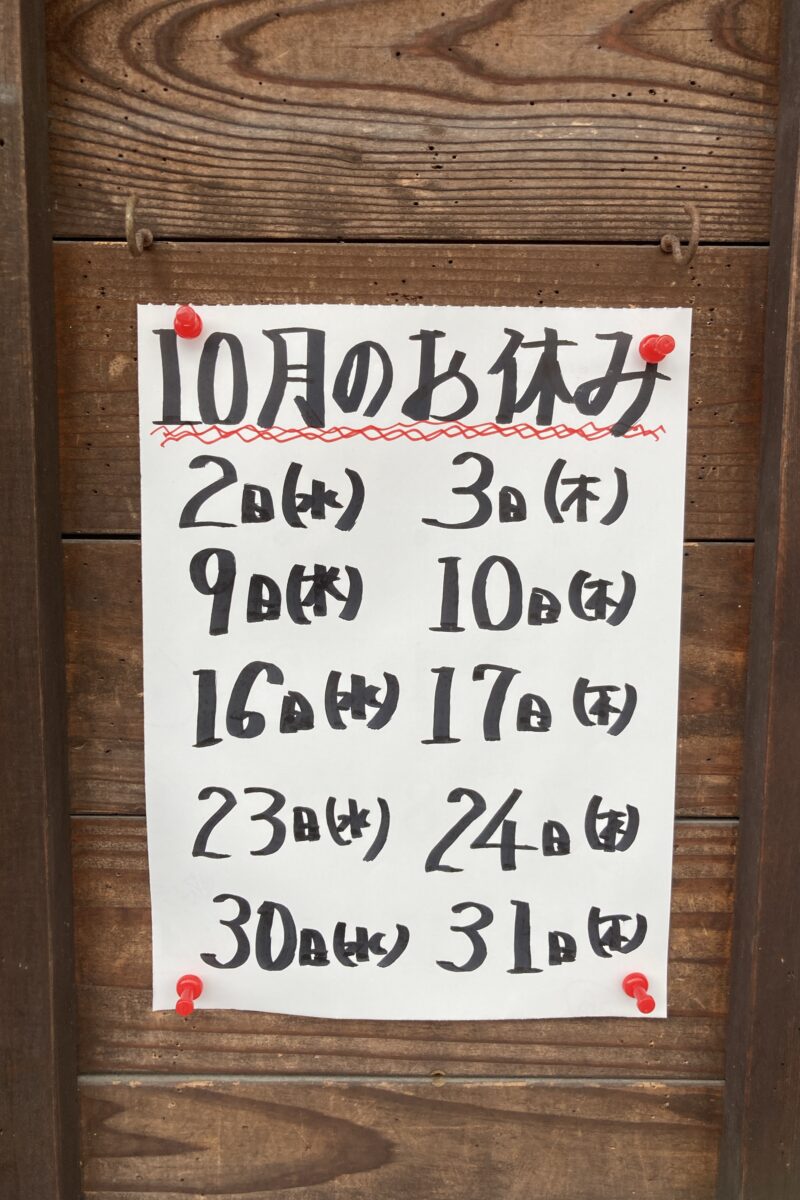 10月のお休み
2日(水) 3日(木)
9日(水) 10日(木)
16日(水) 17日(木)
23日(水) 24日(木)
30日(水) 31日(木)